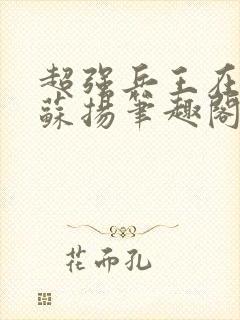 超强兵王在
苏扬笔趣阁
花而孔